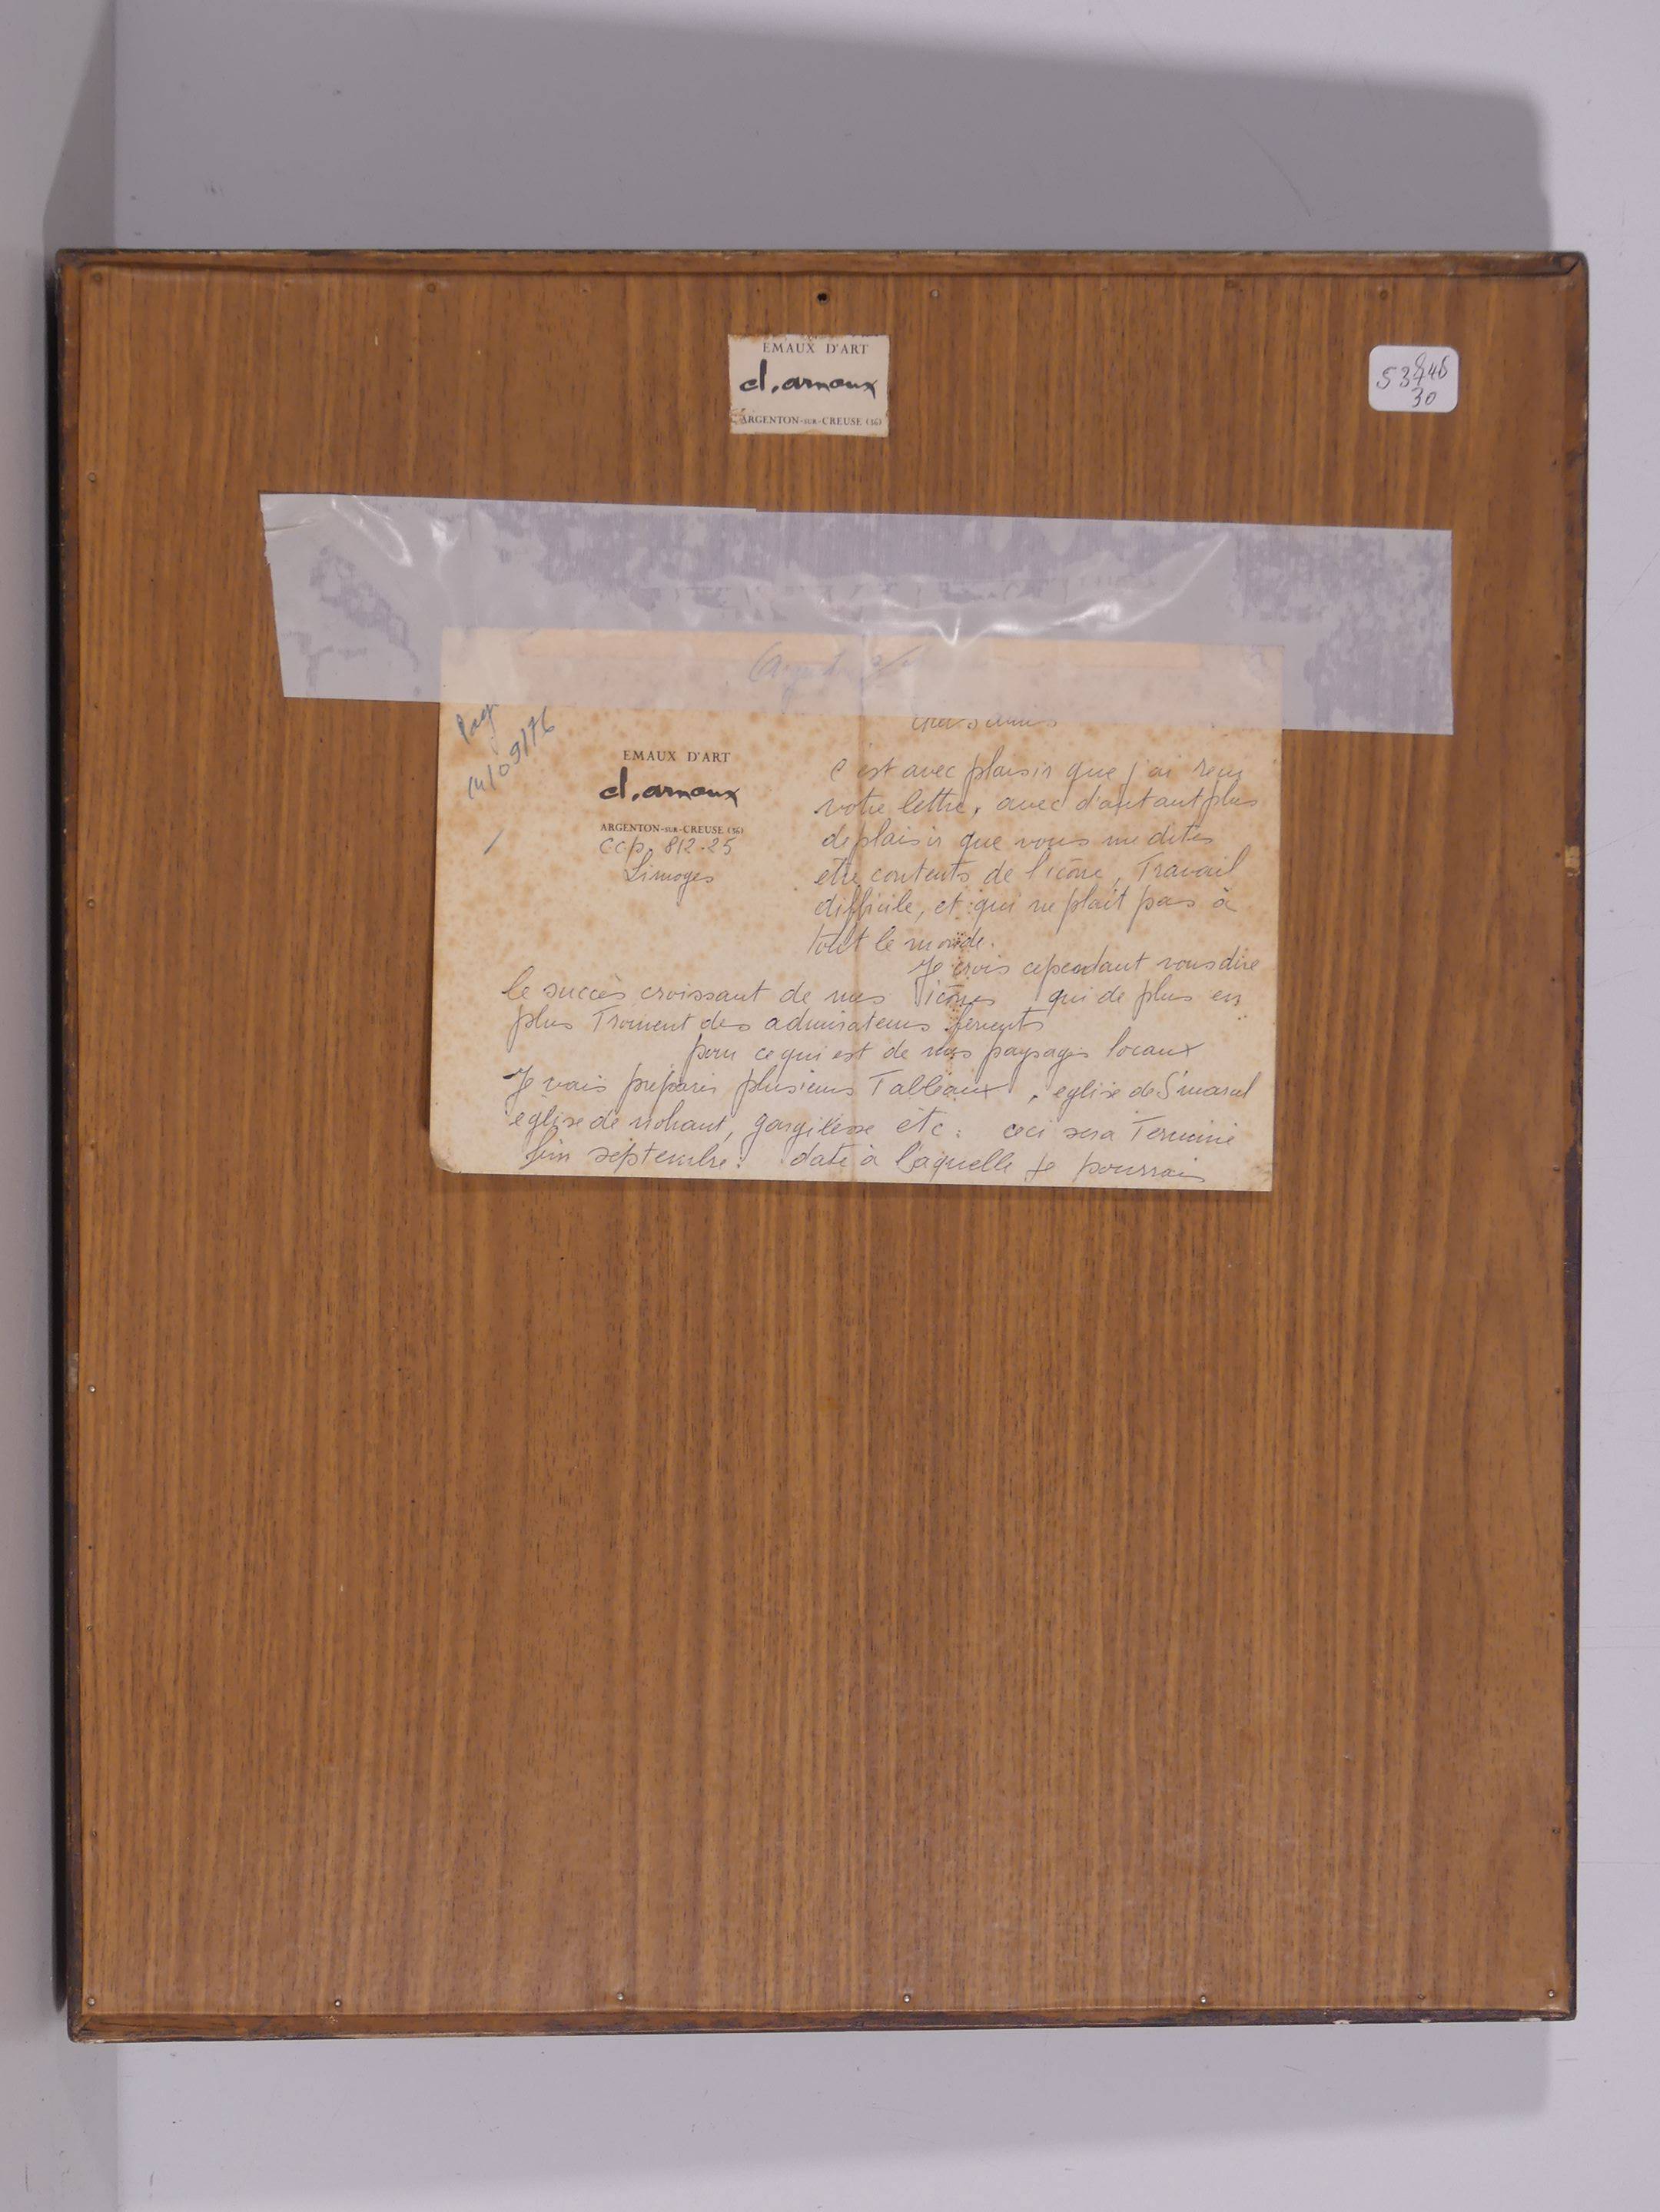 EMAUX D'ART
cl. arnoux
ARGENTON-SUR-CREUSE (36)
30
14/09/76
EMAUX D'ART
cl. arnoux
ARGENTON-SUR-CREUSE (36)
CCP. 812.25
Limoges
chers amis
c'est avec plaisir que j'ai reçu
votre lettre, avec d'autant plus
de plaisir que vous me dites
etre contents de l'icône, Travail
difficile, et qui ne plait pas à
tout le monde.
Je crois cependant vous dire
le succès croissant de mes icônes qui de plus en
plus Trouvent des admirateurs fervents
pour ce qui est de mes paysages locaux
Je vais préparer plusieurs Tableaux, eglise de St marcel
église de nohant, gargilesse étc : ceci sera Terminé
fin septembre : date à laquelle je pourrai